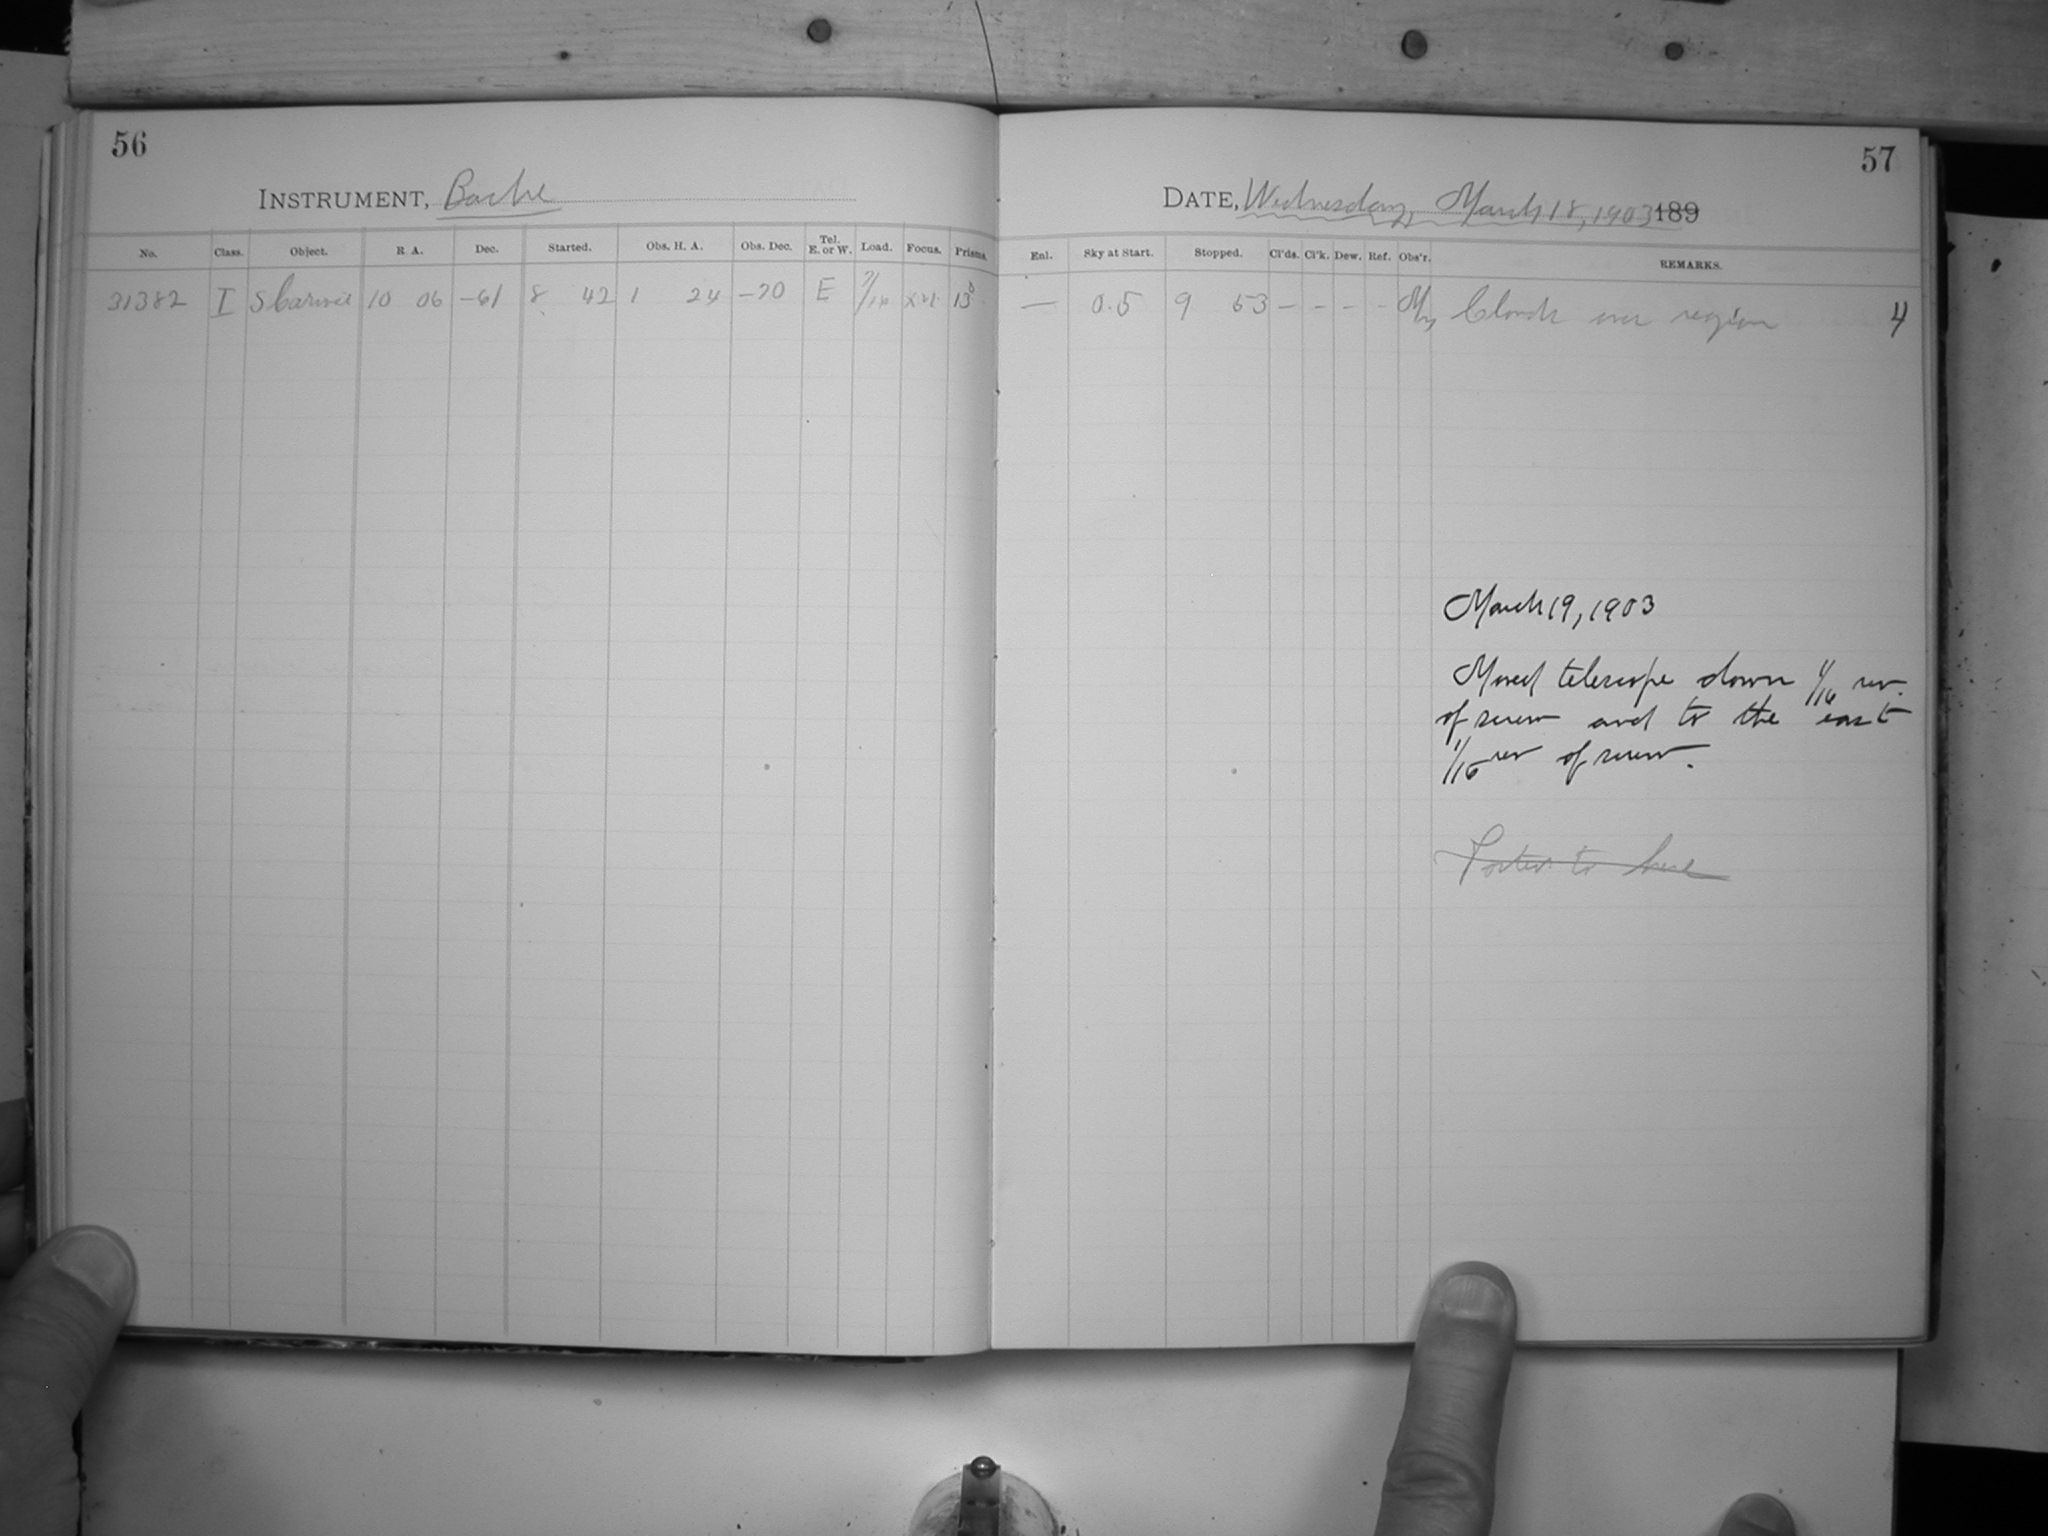 56
INSTRUMENT, Bache
No. Class. Object. R A. Dec. Started. Obs. H. A. Obs. Dec. Tel. E. or W. Load. Focus. Prisms.
31382 I S Carinæ 10 06 -61 8 42 1 24 -70 E 13
57
DATE, Wednesday, March 18, 1903 189
Enl. Sky at Start. Stopped. Cl'ds. Cl'k. Dew. Ref. Obs'r. REMARKS.
— 0.5 9 53 - - - - My Clouds over region 4
March 19, 1903
Moved telescope down 1/16 rev.
of screw and to the east
1/16 rev of screw.
Posted to here